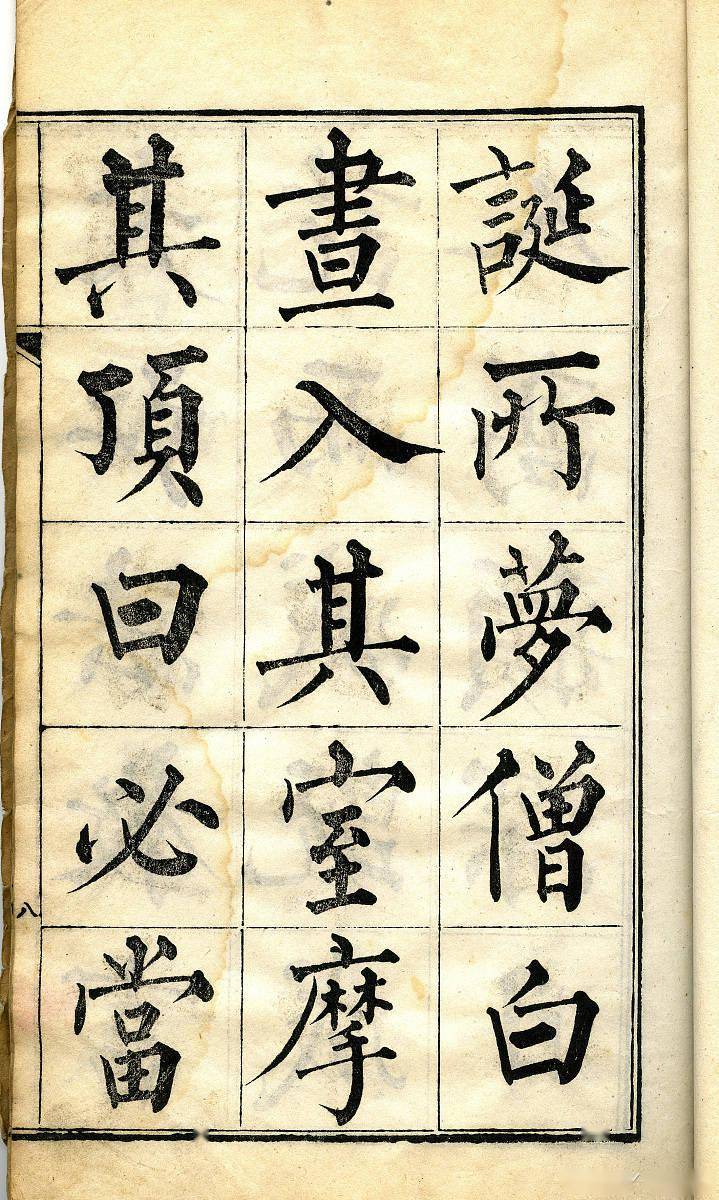 誕所夢僧白
晝入其室摩
其頂曰必當
八